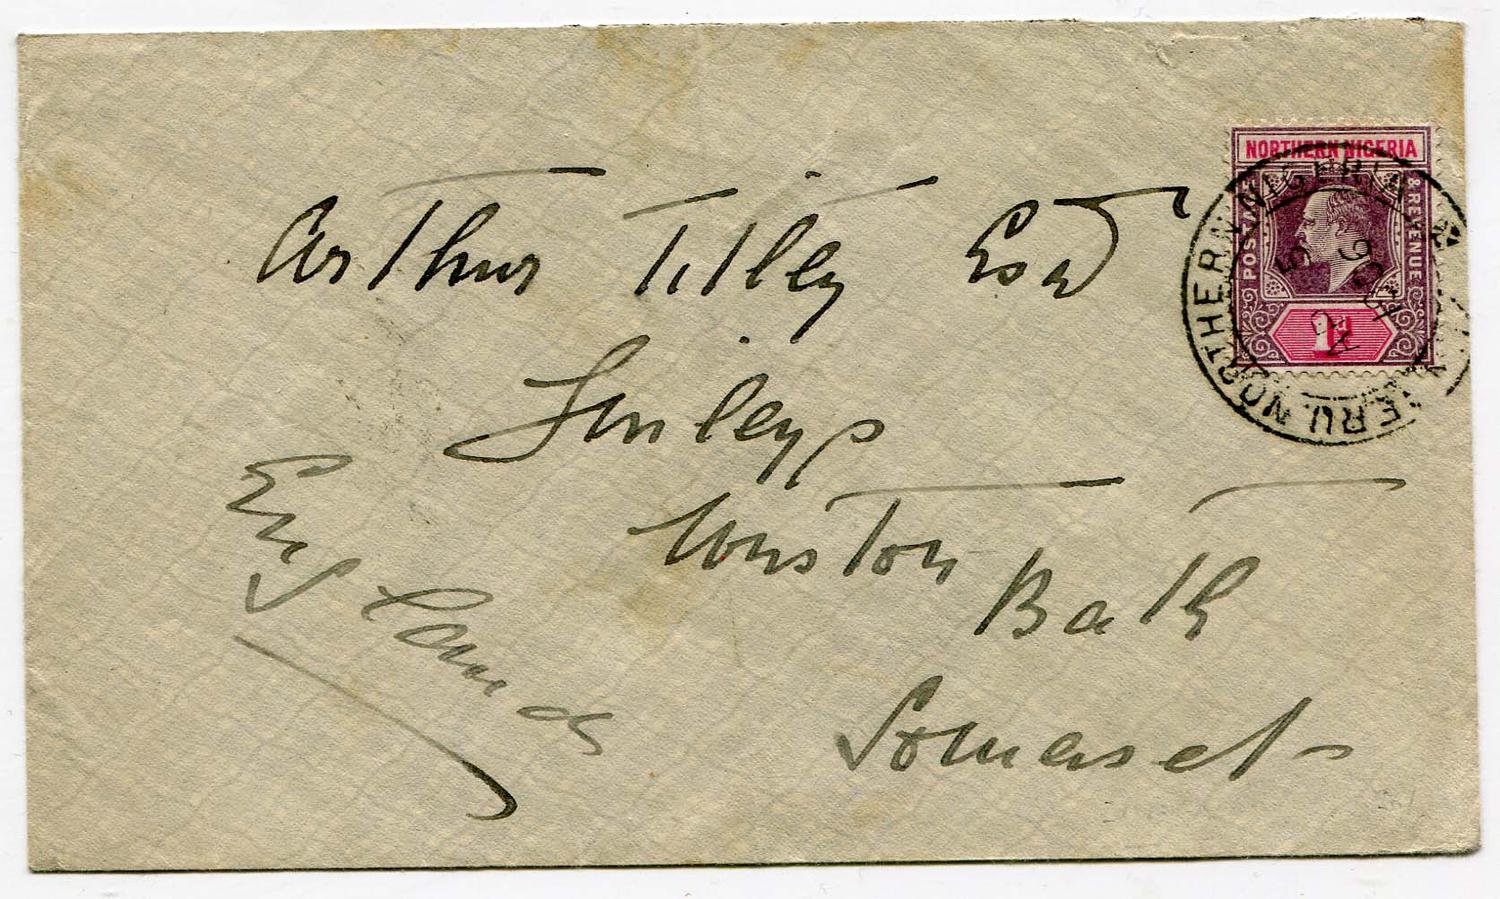 NORTHERN NIGERIA
POSTAGE & REVENUE
1d
NORTHERN NIGERIA
Arthur Titley Esq
Linleys
Wiston
Bath
Somerset
England